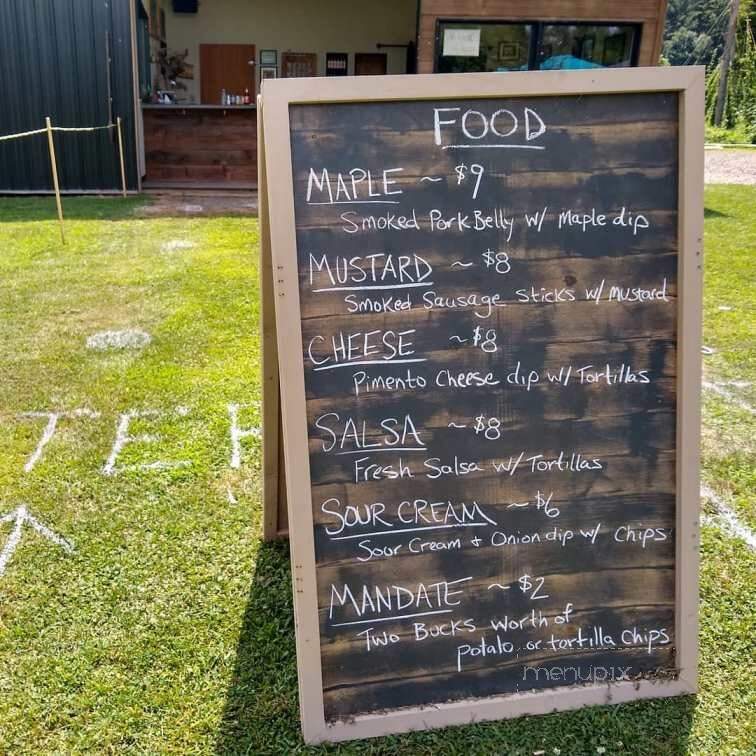 FOOD
MAPLE ~ $9
Smoked Pork Belly w/ Maple dip
MUSTARD ~ $8
Smoked Sausage sticks w/ mustard
CHEESE ~ $8
Pimento Cheese dip w/ Tortillas
SALSA ~ $8
Fresh Salsa w/ Tortillas
SOUR CREAM ~ $6
Sour Cream + Onion dip w/ Chips
MANDATE ~ $2
Two Bucks worth of
potato or tortilla chips
menupix
TE